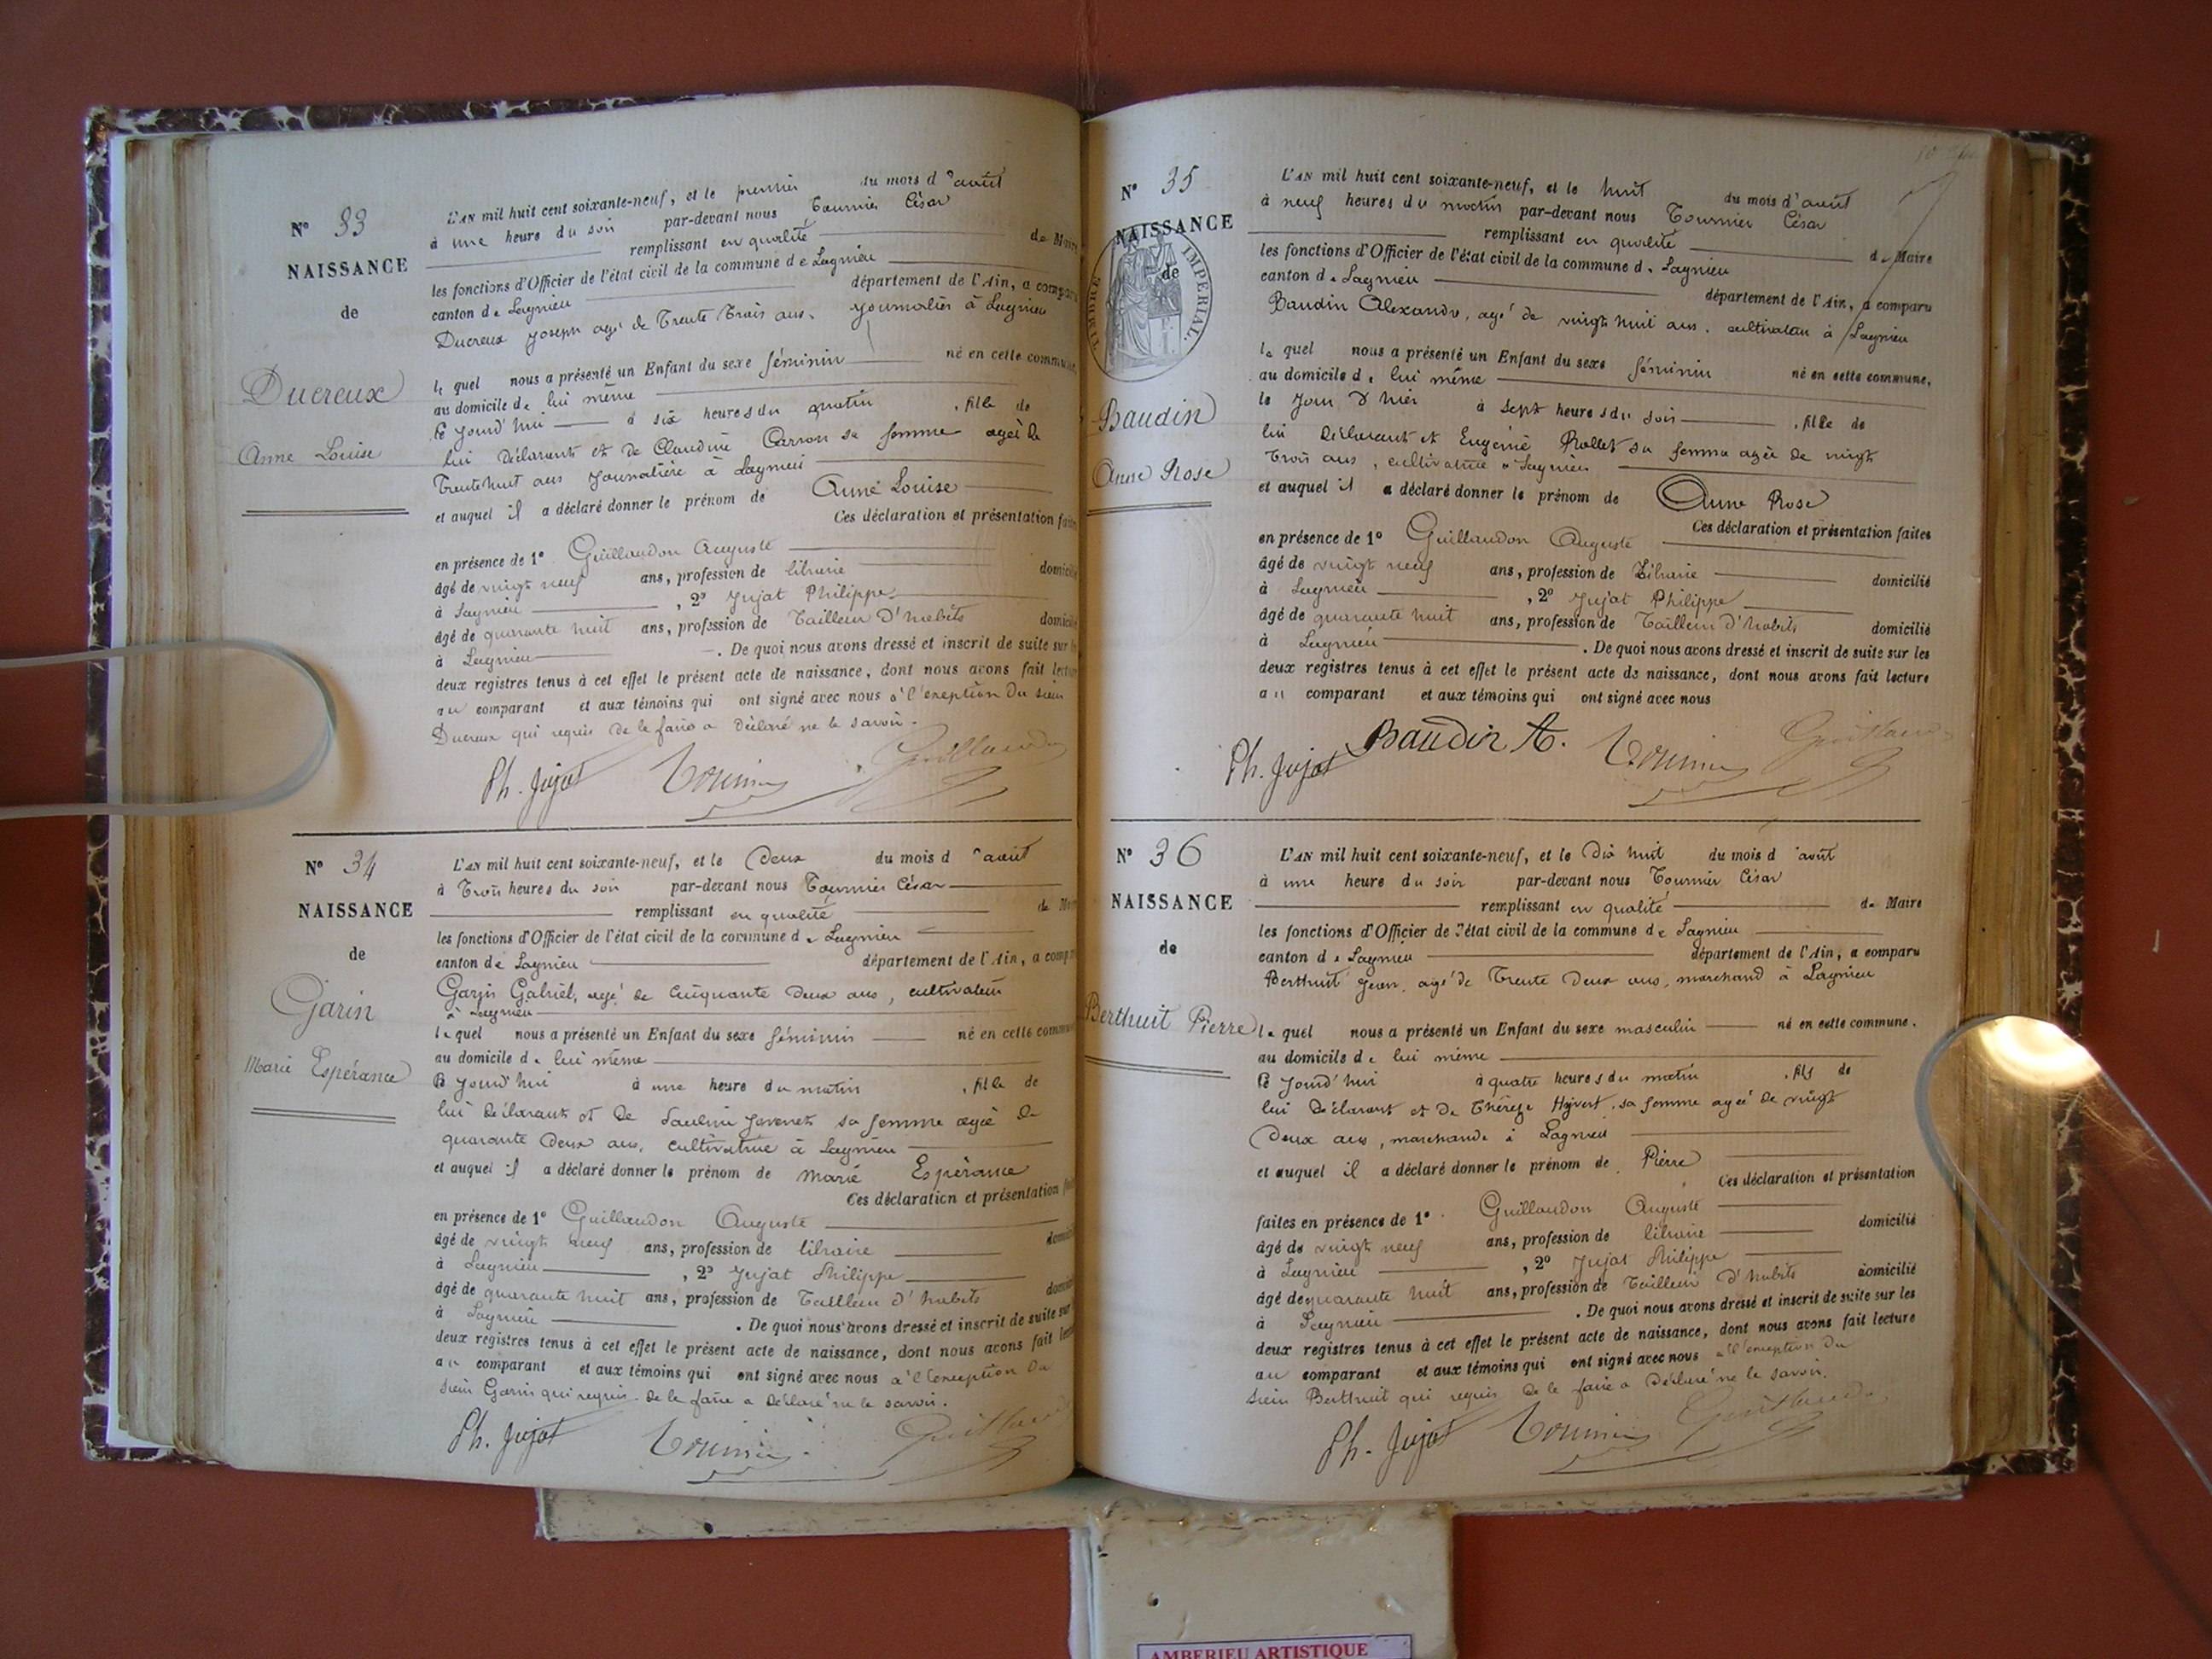 N° 33
NAISSANCE
de
Ducreux
Anne Louise
L'AN mil huit cent soixante-neuf, et le premier du mois d'août
à une heure du soir par-devant nous Tournier César
remplissant en qualité de Maire
les fonctions d'Officier de l'état civil de la commune de Lagnieu
canton de Lagnieu département de l'Ain, a comparu
Ducreux Joseph agé de Trente Trois ans, journalier à Lagnieu
le quel nous a présenté un Enfant du sexe féminin né en cette commune
au domicile de lui même
ce jourd'hui à six heures du matin, fille de
lui Déclarant et de Claudine Carron sa femme agée de
Trente huit ans Journalière à Lagnieu
et auquel il a déclaré donner le prénom de Anne Louise
Ces déclaration et présentation faites
en présence de 1° Guillaudon Auguste
âgé de vingt neuf ans, profession de libraire domicilié
à Lagnieu, 2° Jujat Philippe
âgé de quarante huit ans, profession de Tailleur d'habits domicilié
à Lagnieu. De quoi nous avons dressé et inscrit de suite sur les
deux registres tenus à cet effet le présent acte de naissance, dont nous avons fait lecture
au comparant et aux témoins qui ont signé avec nous à l'exeption du sieur
Ducreux qui requis de le faire a déclaré ne le savoir.
Ph. Jujat Tournier Guillaudon
N° 34
NAISSANCE
de
Garin
Marie Espérance
L'AN mil huit cent soixante-neuf, et le Deux du mois d'août
à Trois heures du soir par-devant nous Tournier César
remplissant en qualité de Maire
les fonctions d'Officier de l'état civil de la commune de Lagnieu
canton de Lagnieu département de l'Ain, a comparu
Garin Gabriel, agé de Cinquante Deux ans, cultivateur
à Lagnieu
le quel nous a présenté un Enfant du sexe féminin né en cette commune
au domicile de lui même
ce jourd'hui à une heure du matin, fille de
lui Déclarant et de sa femme agée de
quarante Deux ans, cultivatrice à Lagnieu
et auquel il a déclaré donner le prénom de Marie Espérance
Ces déclaration et présentation faites
en présence de 1° Guillaudon Auguste
âgé de vingt neuf ans, profession de libraire domicilié
à Lagnieu, 2° Jujat Philippe
âgé de quarante huit ans, profession de Tailleur d'habits domicilié
à Lagnieu. De quoi nous avons dressé et inscrit de suite sur
deux registres tenus à cet effet le présent acte de naissance, dont nous avons fait lecture
au comparant et aux témoins qui ont signé avec nous à l'exeption du
sieur Garin qui requis de le faire a Déclaré ne le savoir.
Ph. Jujat Tournier Guillaudon
N° 35
NAISSANCE
de
TIMBRE IMPERIAL
Baudin
Anne Rose
L'AN mil huit cent soixante-neuf, et le huit du mois d'août
à neuf heures du matin par-devant nous Tournier César
remplissant en qualité de Maire
les fonctions d'Officier de l'état civil de la commune de Lagnieu
canton de Lagnieu département de l'Ain, a comparu
Baudin Alexandre, agé de vingt huit ans, cultivateur à Lagnieu
le quel nous a présenté un Enfant du sexe féminin né en cette commune,
au domicile de lui même
le Jour d'hier à Sept heures du soir, fille de
lui Déclarant et Eugénie Rollet sa femme agée de vingt
Trois ans, cultivatrice à Lagnieu
et auquel il a déclaré donner le prénom de Anne Rose
Ces déclaration et présentation faites
en présence de 1° Guillaudon Auguste
âgé de vingt neuf ans, profession de Libraire domicilié
à Lagnieu, 2° Jujat Philippe
âgé de quarante huit ans, profession de Tailleur d'habits domicilié
à Lagnieu. De quoi nous avons dressé et inscrit de suite sur les
deux registres tenus à cet effet le présent acte de naissance, dont nous avons fait lecture
au comparant et aux témoins qui ont signé avec nous
Ph. Jujat Baudin A. Tournier Guillaudon
N° 36
NAISSANCE
de
Berthuit Pierre
L'AN mil huit cent soixante-neuf, et le Dix huit du mois d'août
à une heure du soir par-devant nous Tournier César
remplissant en qualité de Maire
les fonctions d'Officier de l'état civil de la commune de Lagnieu
canton de Lagnieu département de l'Ain, a comparu
Berthuit Jean, agé de Trente Deux ans, marchand à Lagnieu
le quel nous a présenté un Enfant du sexe masculin né en cette commune.
au domicile de lui même
ce jourd'hui à quatre heures du matin, fils de
lui Déclarant et de Thérèze Hyvert, sa femme agée de vingt
Deux ans, marchande à Lagnieu
et auquel il a déclaré donner le prénom de Pierre
Ces déclaration et présentation
faites en présence de 1° Guillaudon Auguste
âgé de vingt neuf ans, profession de libraire domicilié
à Lagnieu, 2° Jujat Philippe
âgé de quarante huit ans, profession de Tailleur d'habits domicilié
à Lagnieu. De quoi nous avons dressé et inscrit de suite sur les
deux registres tenus à cet effet le présent acte de naissance, dont nous avons fait lecture
au comparant et aux témoins qui ont signé avec nous à l'exception du
sieur Berthuit qui requis de le faire a Déclaré ne le savoir.
Ph. Jujat Tournier Guillaudon
AMBERIEU ARTISTIQUE